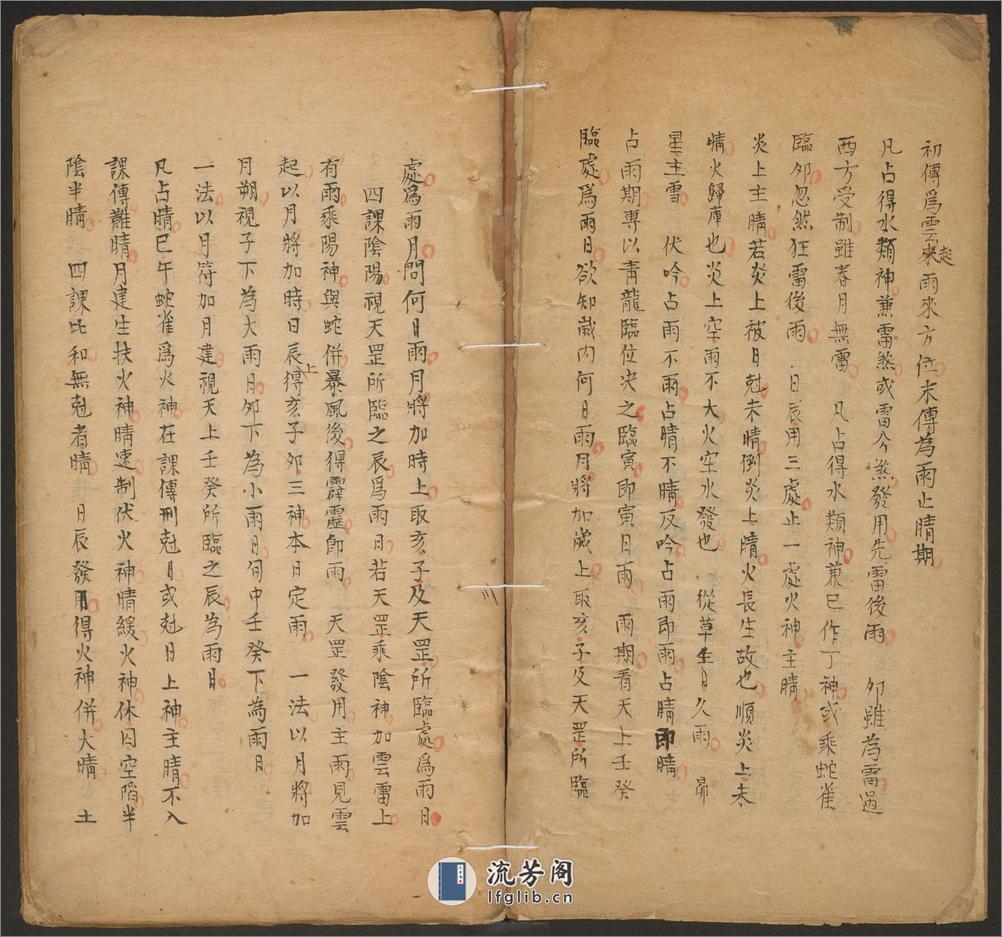 初傳爲雲來起雨來方位末傳為雨止晴期
凡占得水類神兼雷煞或雷公煞發用先雷後雨　夘雖為雷遇
西方受制雖春月無雷　凡占得水類神兼巳作丁神或乘蛇雀
臨夘忽然狂雷後雨　日辰用三處止一處火神主晴
炎上主晴若炎上被日尅未晴倒炎上晴火長生故也順炎上未
晴火歸庫也炎上空雨不大火空水發也　從草生日久雨　昴
星主雪　伏吟占雨不雨占晴不晴反吟占雨即雨占晴即晴
占雨期專以青龍臨位決之臨寅即寅日雨　雨期看天上壬癸
臨處爲雨日欲知歲内何日雨月將加歲上取亥子及天罡所臨
處爲雨月問何日雨月將加時上取亥子及天罡所臨處爲雨日
四課陰陽視天罡所臨之辰爲雨日若天罡乘陰神加雲雷上
有雨乘陽神與蛇併暴風後得霹靂即雨　天罡發用主雨見雲
起以月將加時日辰上得亥子夘三神本日定雨　一法以月將加
月朔視子下為大雨日夘下為小雨日旬中壬癸下為雨日
一法以月符加月建視天上壬癸所臨之辰為雨日
凡占晴巳午蛇雀爲火神在課傳刑尅日或尅日上神主晴不入
課傳難晴月建生扶火神晴速制伏火神晴緩火神休囚空陷半
陰半晴　四課比和無尅者晴　日辰發用得火神併大晴　土
流芳阁
lfglib.cn